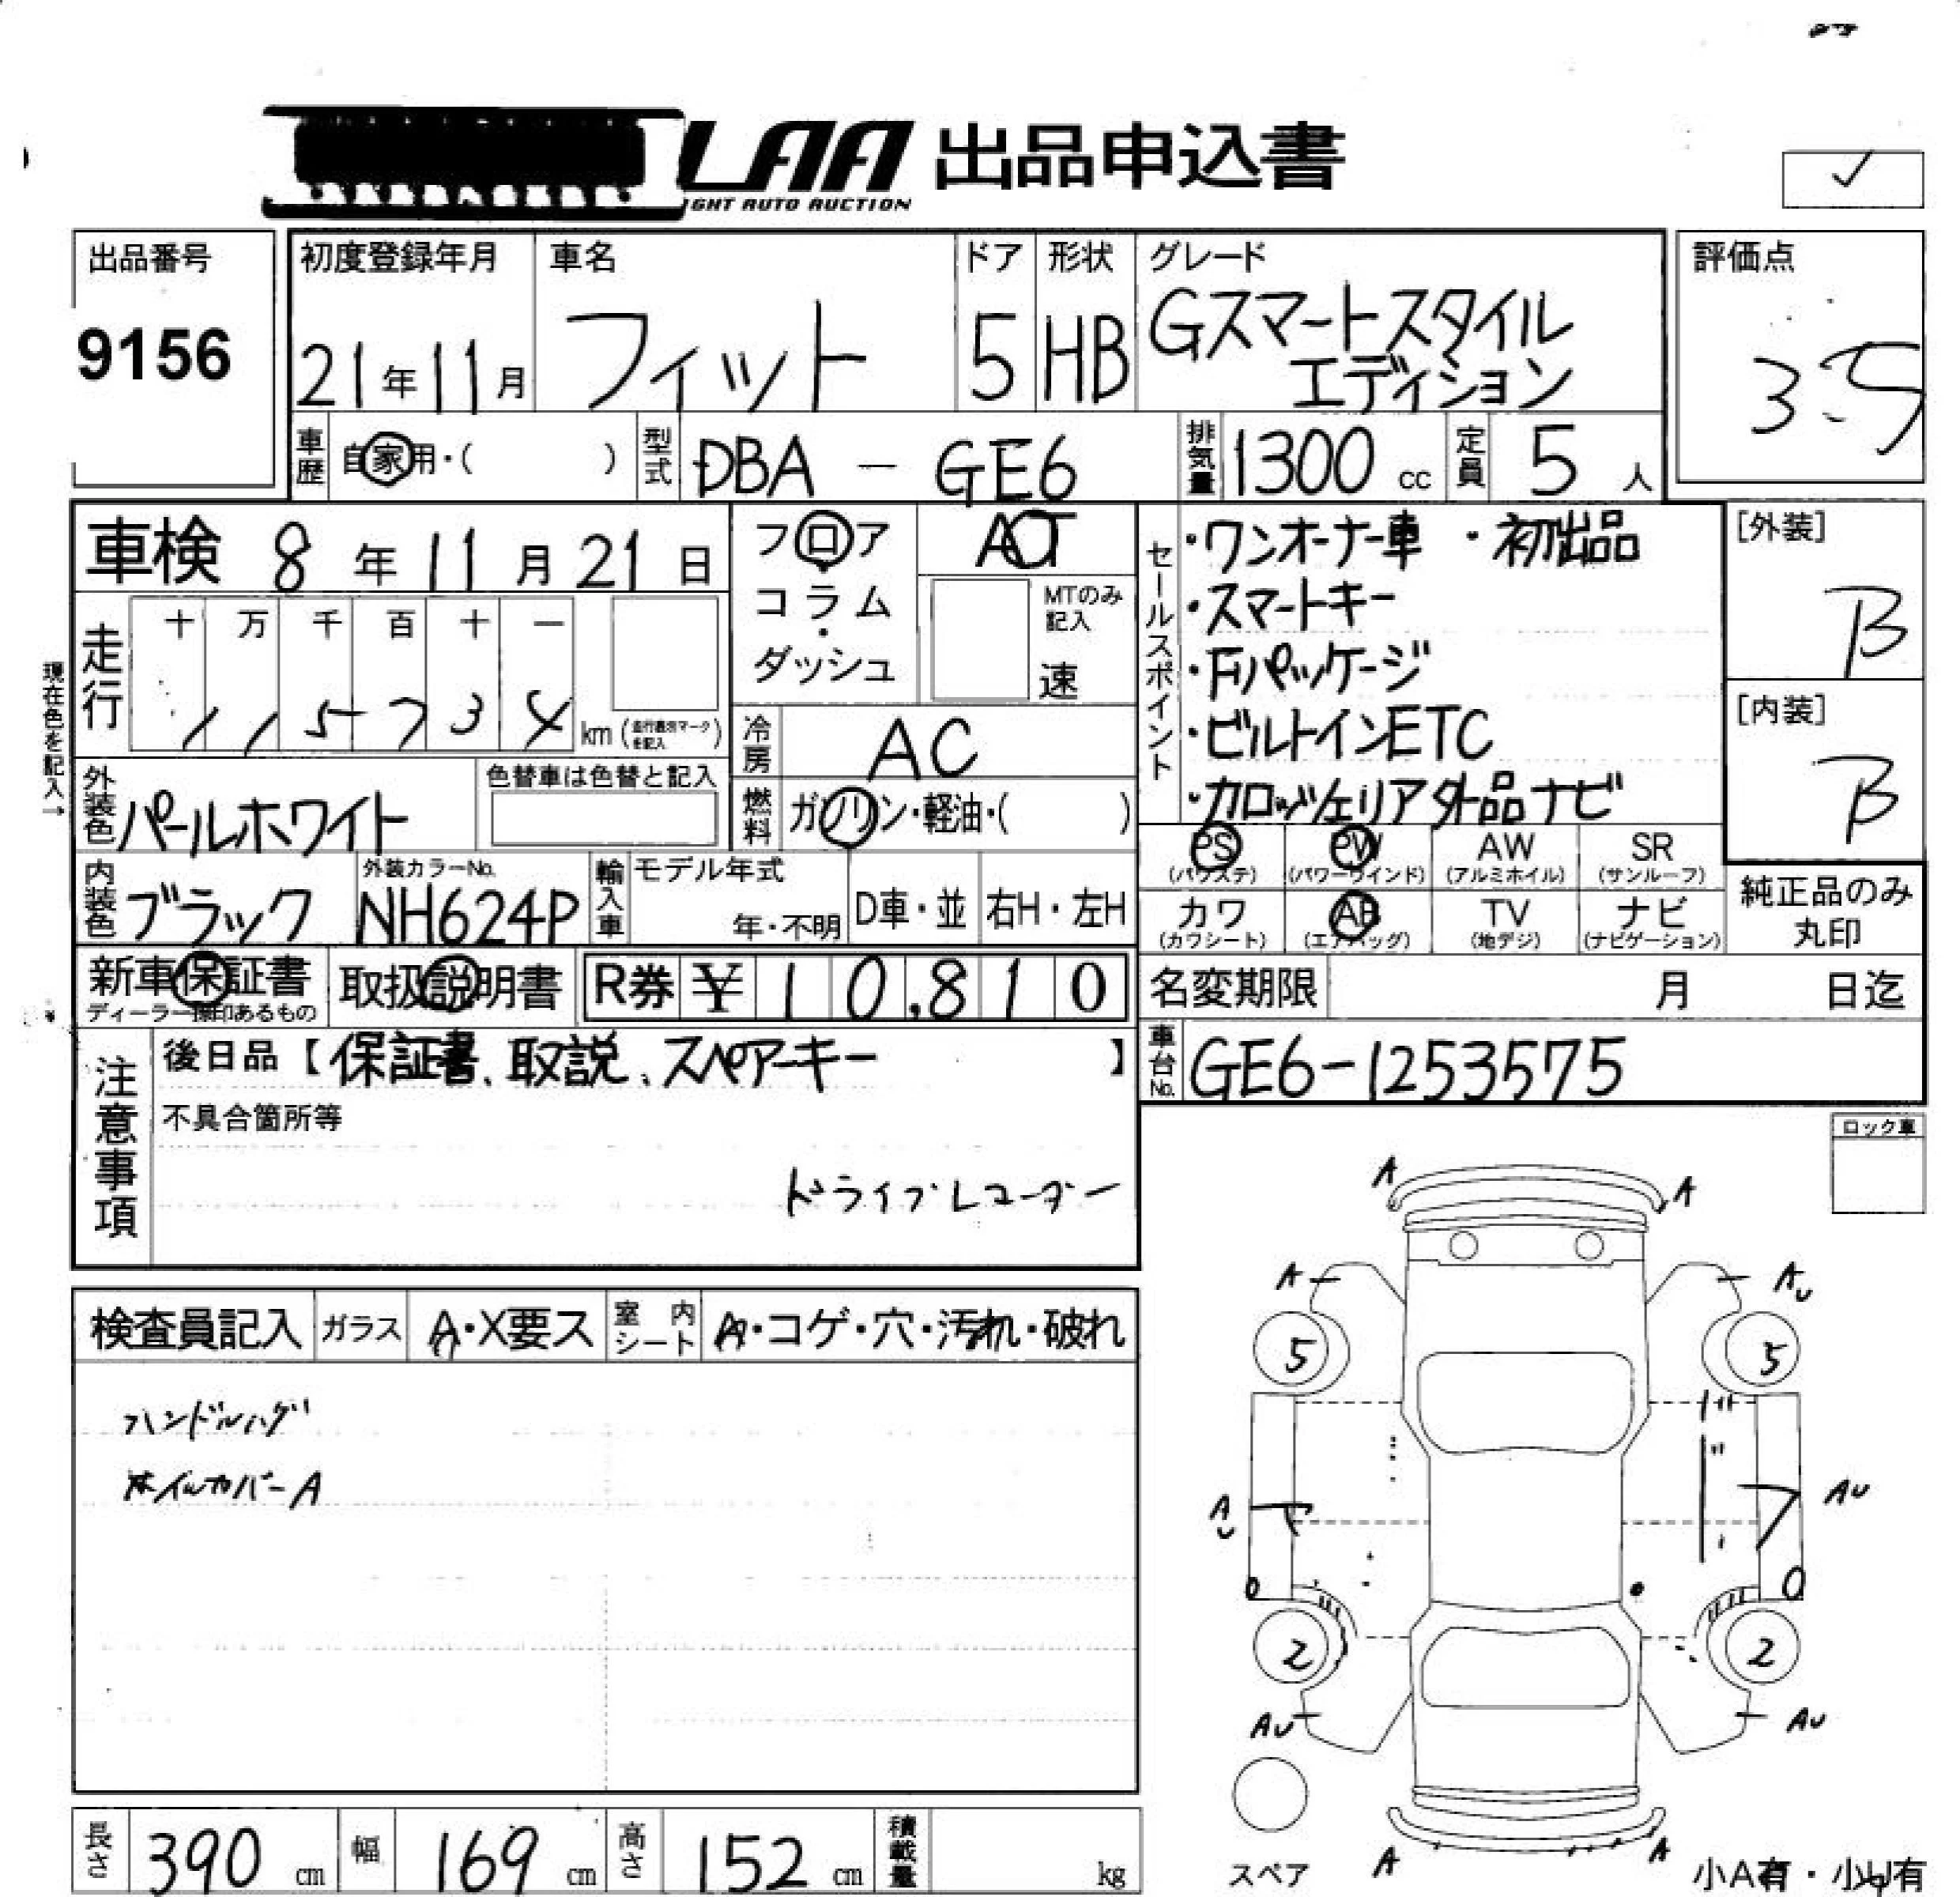 LAA 出品申込書
IGHT AUTO AUCTION
出品番号
9156
初度登録年月
21年11月
車名
フィット
ドア
5
形状
HB
グレード
Gスマートスタイル
エディション
評価点
3.5
車歴
自家用・( )
型式
DBA - GE6
排気量
1300 cc
定員
5 人
車検 8年11月21日
フロア
コラム
・
ダッシュ
AT
MTのみ
記入
速
セールスポイント
・ワンオーナー車 ・初出品
・スマートキー
・Fパッケージ
・ビルトインETC
・カロッツェリア外品ナビ
[外装]
B
[内装]
B
現在色を記入→
走行
十 万 千 百 十 一
1 1 5 7 3 4 km (走行直別マークを記入)
冷房
AC
外装色
パールホワイト
色替車は色替と記入
燃料
ガソリン・軽油・( )
PS
(パワステ)
PW
(パワーウインド)
AW
(アルミホイル)
SR
(サンルーフ)
カワ
(カワシート)
AB
(エアバッグ)
TV
(地デジ)
ナビ
(ナビゲーション)
純正品のみ
丸印
内装色
ブラック
外装カラーNo.
NH624P
輸入車
モデル年式
年・不明
D車・並
右H・左H
新車保証書
ディーラー捺印あるもの
取扱説明書
R券 ¥ 10,810
名変期限 月 日迄
車台No.
GE6-1253575
注意事項
後日品【保証書、取説、スペアーキー 】
不具合箇所等
ドライブレコーダー
ロック車
検査員記入
ガラス
A・X要ス
室内シート
A・コゲ・穴・汚れ・破れ
ハンドルハゲ
ホイルカバーA
A A
A AU
5 5
AU AU
2 2
AU AU
A A
スペア
小A有・小U有
長さ 390 cm
幅 169 cm
高さ 152 cm
積載量 kg